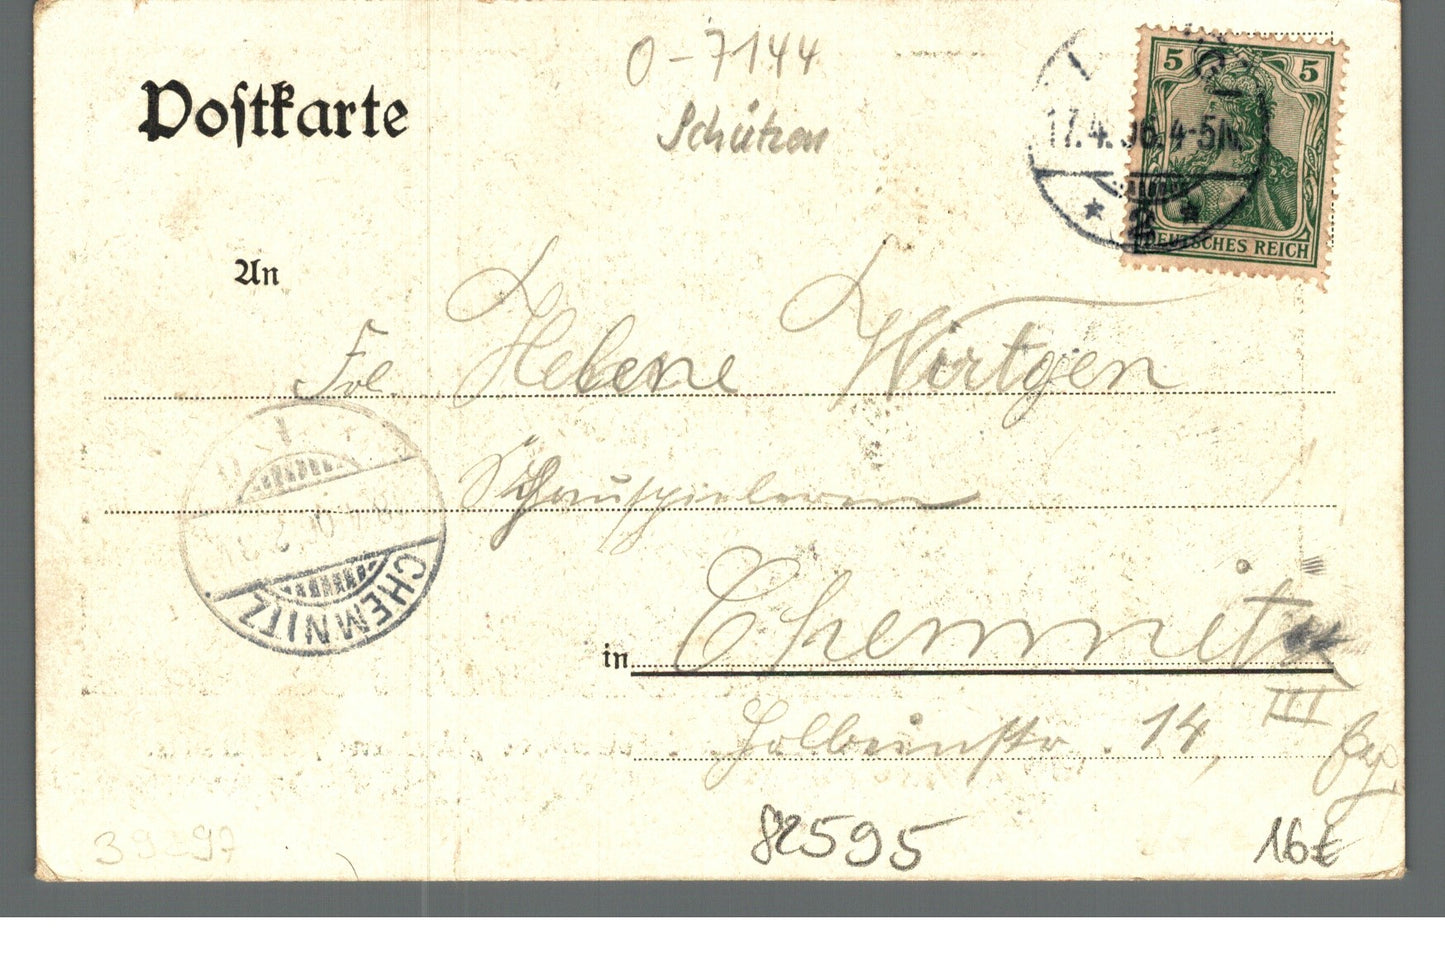 O-7144
Postkarte
Schützen
5 5
17.4.06.4-5N.
* 2 *
DEUTSCHES REICH
An
Frl. Helene Wirtgen
Schauspielerin
CHEMNITZ
in Chemnitz
Holbeinstr. 14, III
82595
16€
39-97